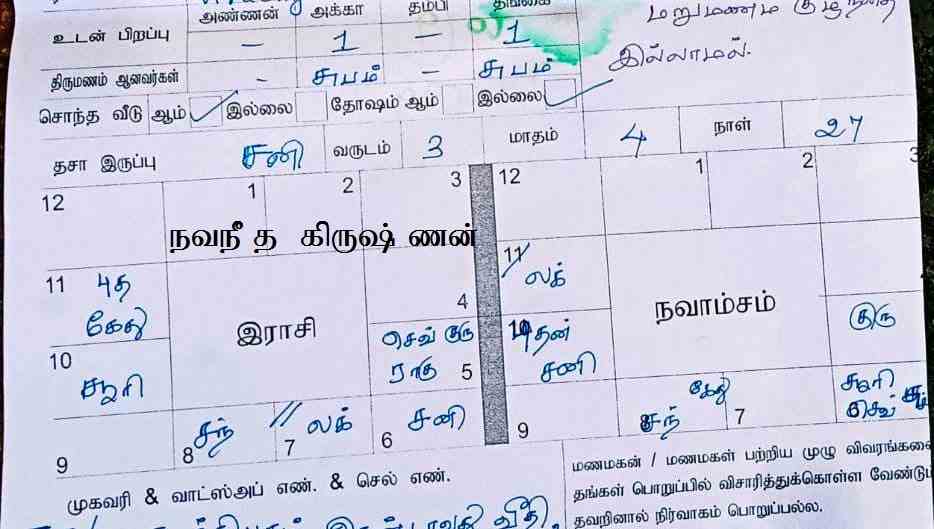 அண்ணன் அக்கா தம்பி தங்கை
உடன் பிறப்பு – 1 – 1
மறுமணம்
இல்லாமல்.
திருமணம் ஆனவர்கள் - சுபம் – சுபம்
சொந்த வீடு ஆம் இல்லை தோஷம் ஆம் இல்லை
தசா இருப்பு சனி வருடம் 3 மாதம் 4 நாள் 27
12 1 2 3 12 1 2 3
நவநீத கிருஷ்ணன்
11 புத கேது 4 11 லக்
இராசி நவாம்சம்
10 சூரி செவ் குரு ராகு 5 10 புதன் சனி குரு
9 8 சந் 7 லக் 6 சனி 9 8 சந் கேது 7 சூரி செவ்
முகவரி & வாட்ஸ்அப் எண். & செல் எண்.
மணமகன் / மணமகள் பற்றிய முழு விவரங்களை
தங்கள் பொறுப்பில் விசாரித்துக்கொள்ள வேண்டும்
தவறினால் நிர்வாகம் பொறுப்பல்ல.
வீதி,